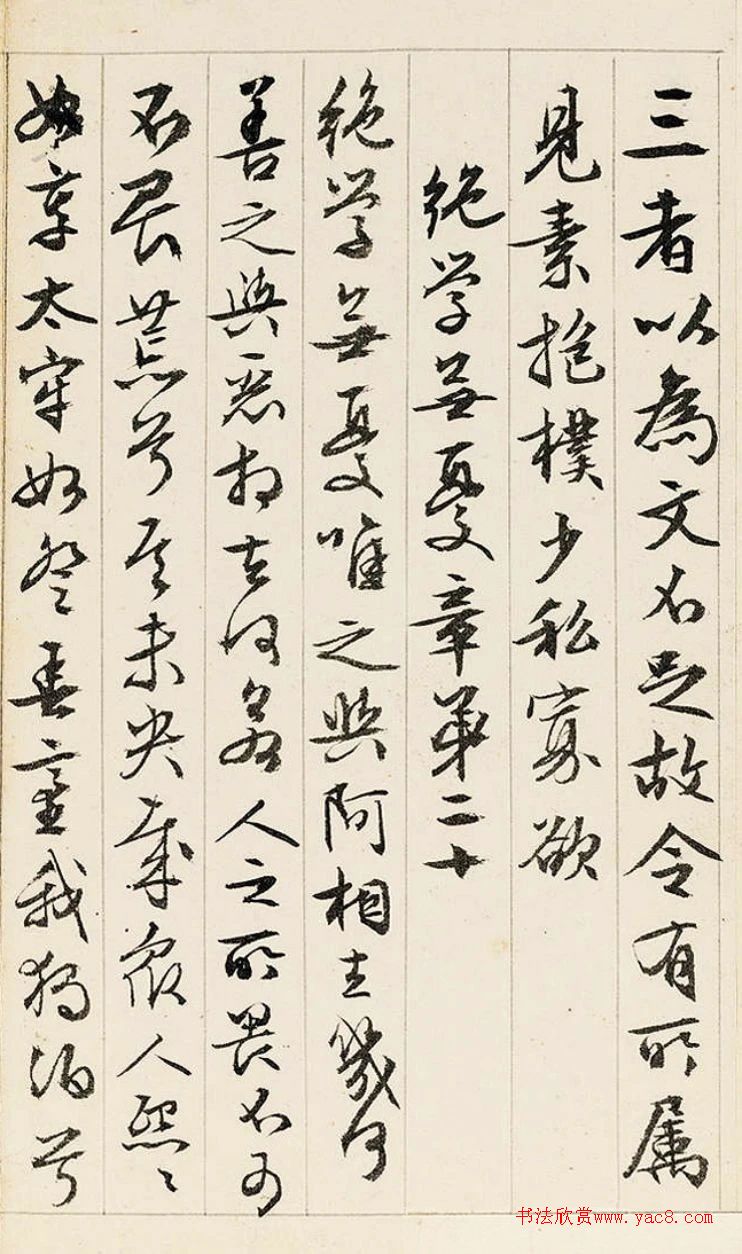 三者以為文不足故令有所屬
見素抱樸少私寡欲
絕学無憂章第二十
絕学無憂唯之與阿相去幾何
善之與惡相去何若人之所畏不可
不畏荒兮其未央哉眾人熙々
如享太牢如登春臺我獨泊兮
书法欣赏www.yac8.com